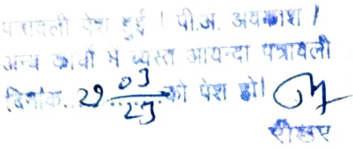 पत्रावली पेश हुई । पी.अ. अवकाश /
अन्य कार्यो मे व्यस्त आयन्दा पत्रावली
दिनांक 29 03/25 को पेश हो।
रीडर